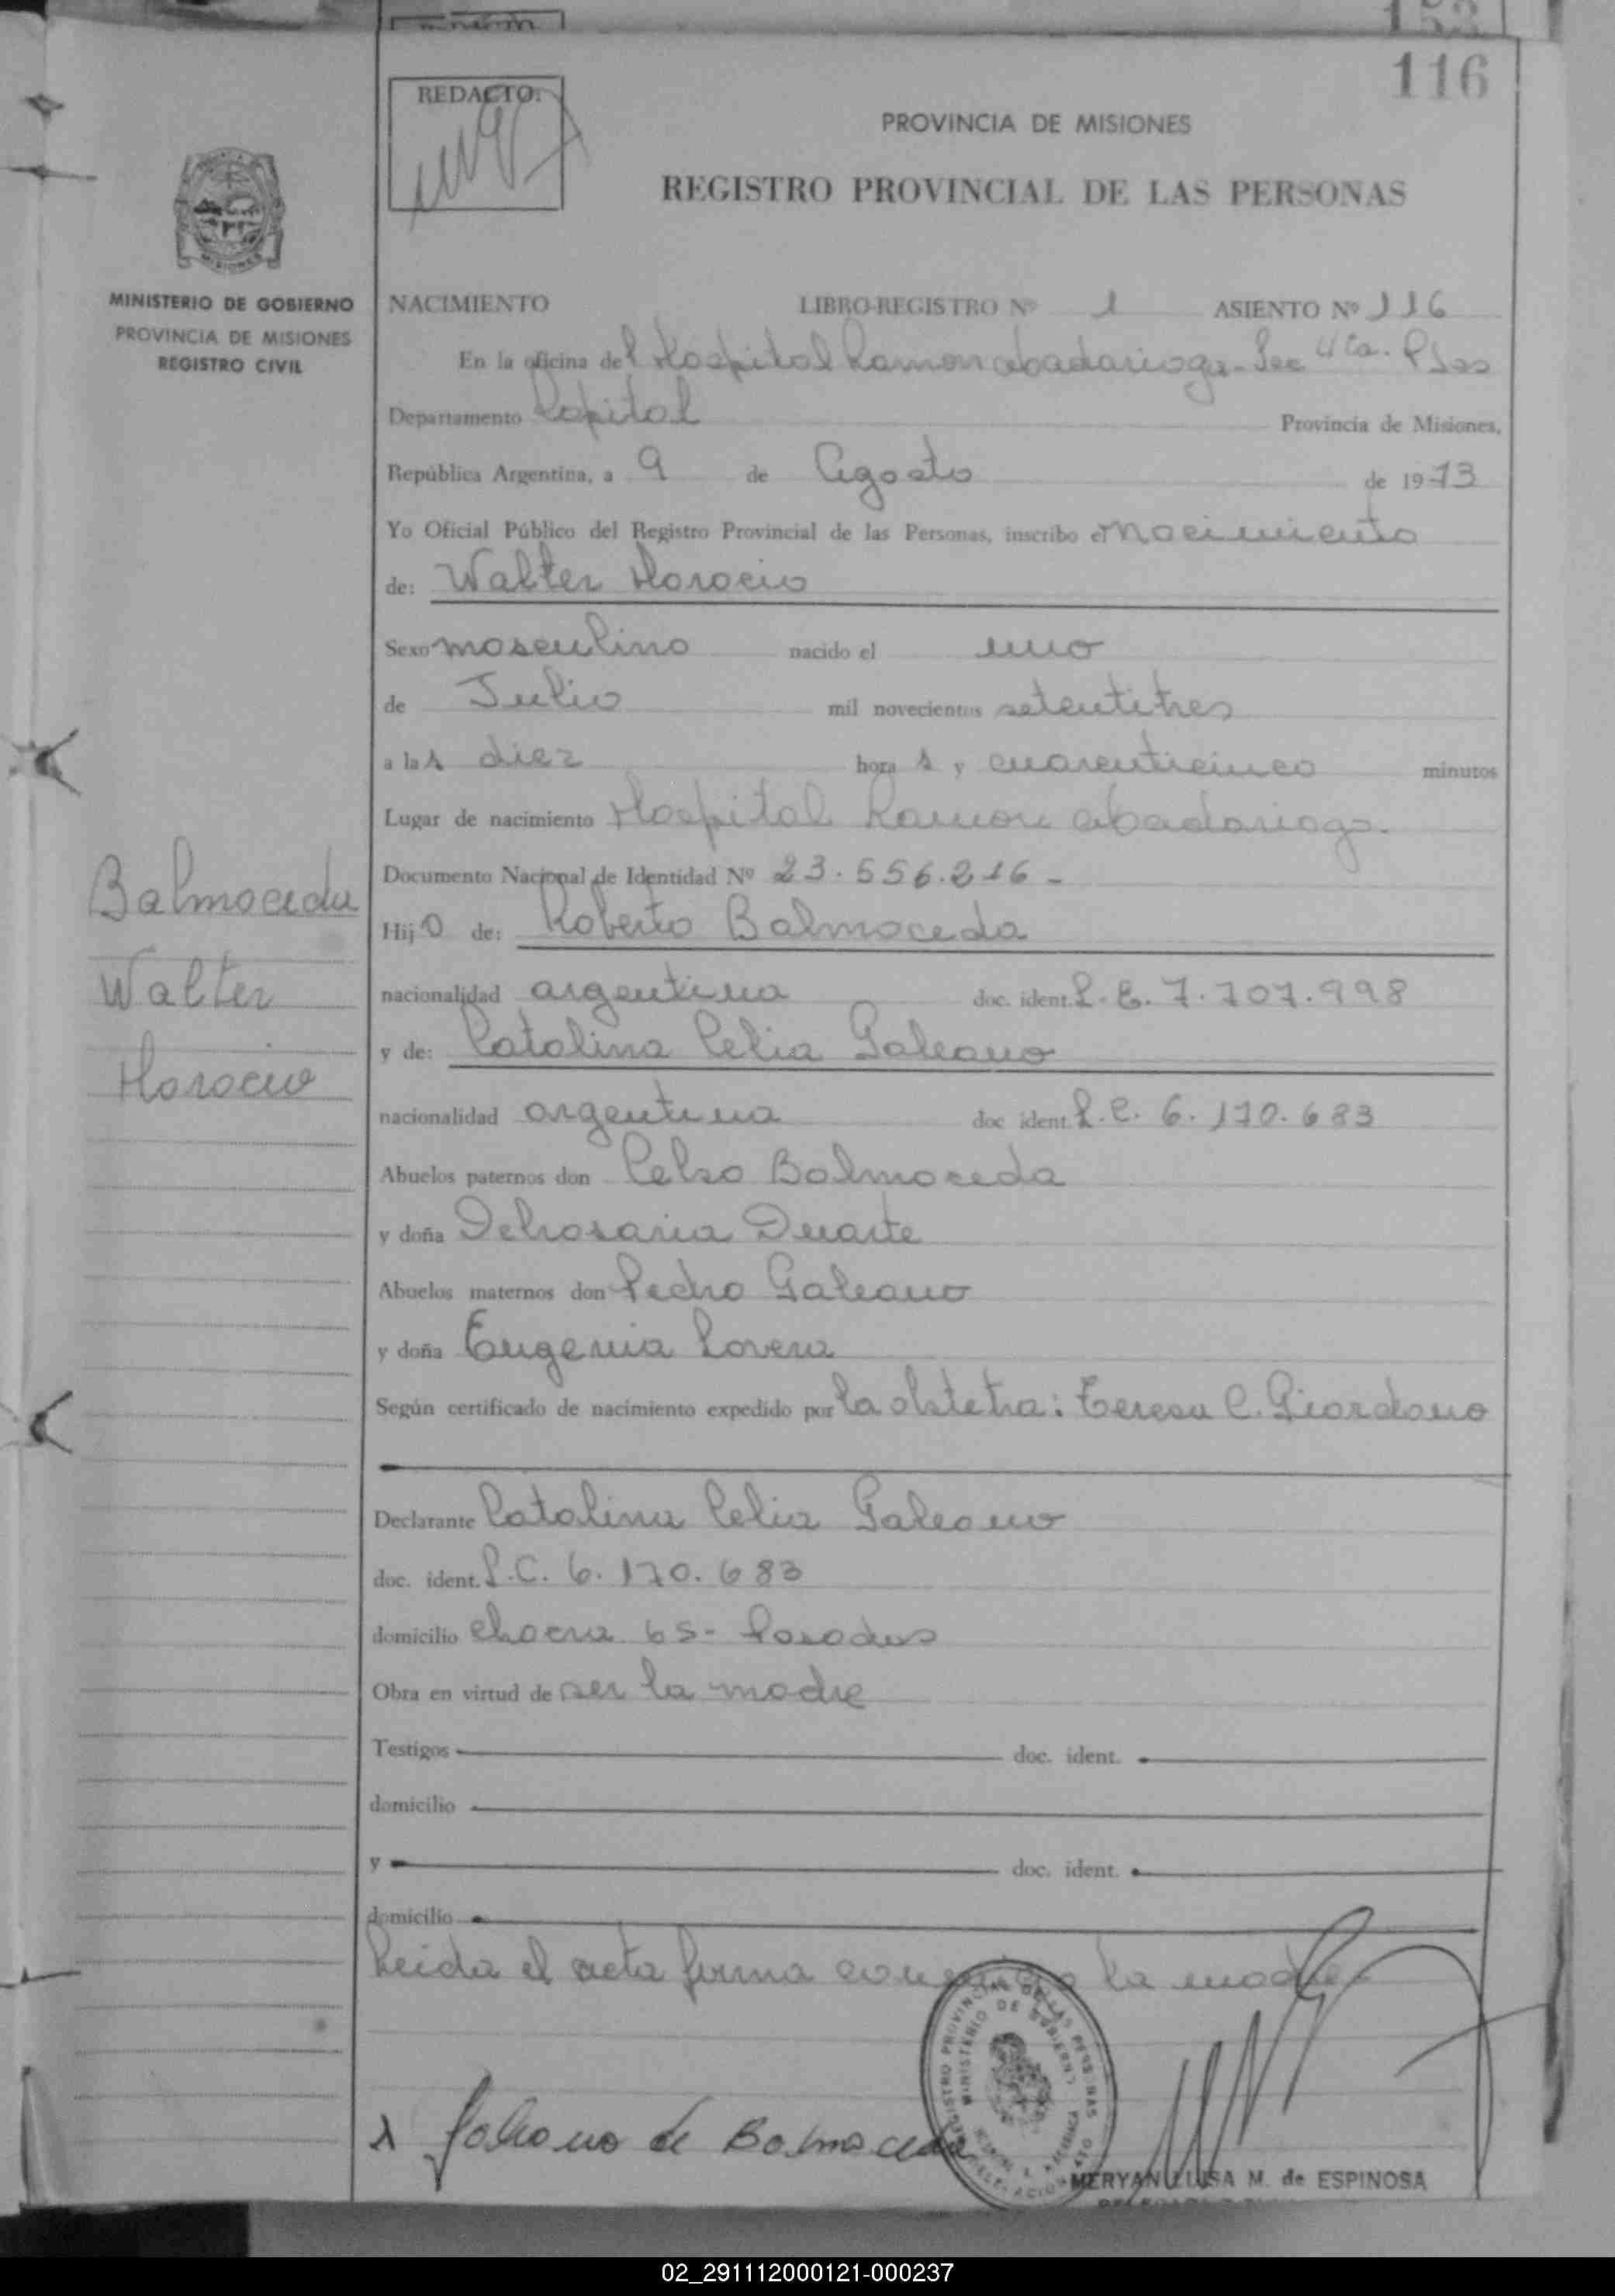 153
116
REDACTO:
PROVINCIA DE MISIONES
REGISTRO PROVINCIAL DE LAS PERSONAS
MISIONES
MINISTERIO DE GOBIERNO
PROVINCIA DE MISIONES
REGISTRO CIVIL
NACIMIENTO LIBRO-REGISTRO Nº 1 ASIENTO Nº 116
En la oficina del Hospital Ramon abadariaga - Sec 4ta. Pdas
Departamento Capital Provincia de Misiones,
República Argentina, a 9 de Agosto de 1973
Yo Oficial Público del Registro Provincial de las Personas, inscribo el nacimiento
de: Walter Horacio
Sexo masculino nacido el uno
de Julio mil novecientos setentitres
a las diez horas y cuarenticinco minutos
Lugar de nacimiento Hospital Ramon abadariaga.
Documento Nacional de Identidad Nº 23.556.216 -
Balmaceda
Walter
Horacio
Hijo de: Roberto Balmaceda
nacionalidad argentina doc. ident. L.E. 7.707.998
y de: Catalina Celia Galeano
nacionalidad argentina doc ident. L.C. 6.170.683
Abuelos paternos don Celso Balmaceda
y doña Delrosaria Duarte
Abuelos maternos don Pedro Galeano
y doña Eugenia Lovera
Según certificado de nacimiento expedido por la obstetra: Teresa C. Giordano
Declarante Catalina Celia Galeano
doc. ident. L.C. 6.170.683
domicilio chacra 65 - Posadas
Obra en virtud de ser la madre
Testigos doc. ident.
domicilio
y doc. ident.
domicilio
Leida el acta firma conmigo la madre -
REGISTRO PROVINCIAL DE LAS PERSONAS
MINISTERIO DE GOBIERNO
Galeano de Balmaceda
MERYAN LUISA M. de ESPINOSA
02_291112000121-000237